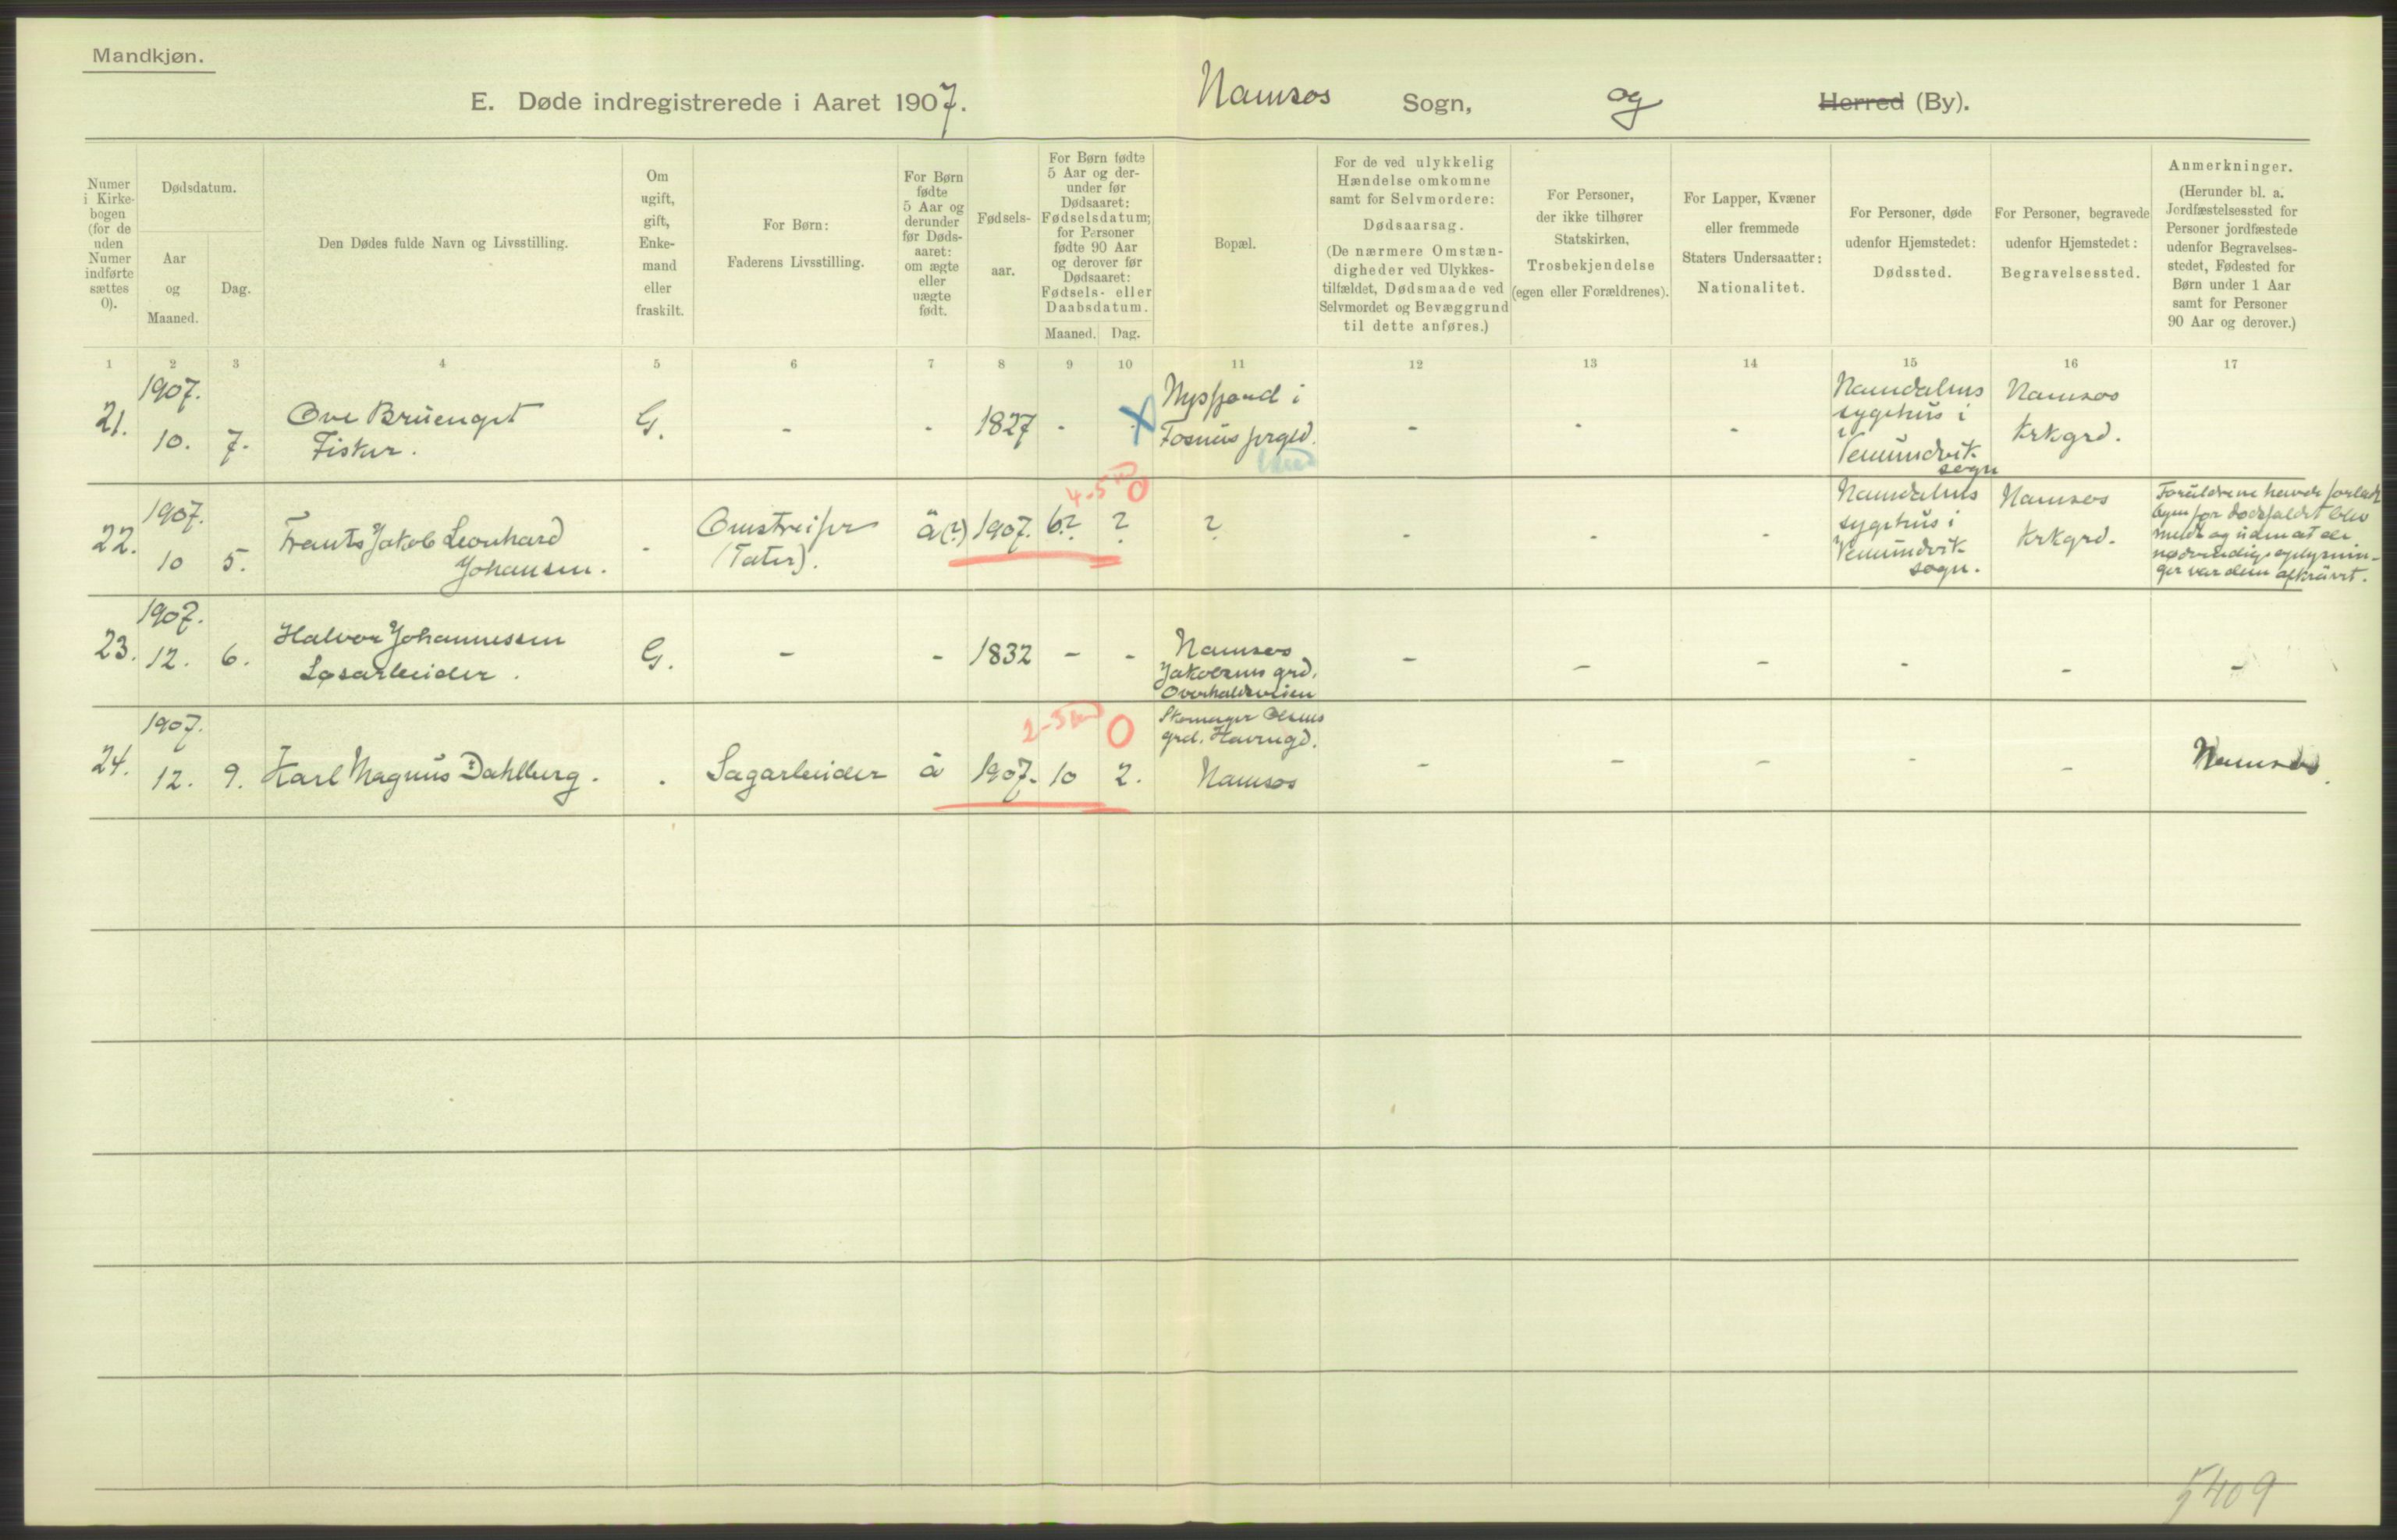 Mandkjøn.
E. Døde indregistrerede i Aaret 1907. Namsos Sogn, og Herred (By).
Numer
i Kirke-
bogen
(for de
uden
Numer
indførte
sættes
0).
Dødsdatum.
Aar
og
Maaned.
Dag.
Den Dødes fulde Navn og Livsstilling.
Om
ugift,
gift,
Enke-
mand
eller
fraskilt.
For Børn:
Faderens Livsstilling.
For Børn
fødte
5 Aar og
derunder
før Døds-
aaret:
om ægte
eller
uægte
født.
Fødsels-
aar.
For Børn fødte
5 Aar og der-
under før
Dødsaaret:
Fødselsdatum;
for Personer
fødte 90 Aar
og derover før
Dødsaaret:
Fødsels- eller
Daabsdatum.
Maaned. Dag.
Bopæl.
For de ved ulykkelig
Hændelse omkomne
samt for Selvmordere:
Dødsaarsag.
(De nærmere Omstæn-
digheder ved Ulykkes-
tilfældet, Dødsmaade ved
Selvmordet og Bevæggrund
til dette anføres.)
For Personer,
der ikke tilhører
Statskirken,
Trosbekjendelse
(egen eller Forældrenes).
For Lapper, Kvæner
eller fremmede
Staters Undersaatter:
Nationalitet.
For Personer, døde
udenfor Hjemstedet:
Dødssted.
For Personer, begravede
udenfor Hjemstedet:
Begravelsessted.
Anmerkninger.
(Herunder bl. a.
Jordfæstelsessted for
Personer jordfæstede
udenfor Begravelses-
stedet, Fødested for
Børn under 1 Aar
samt for Personer
90 Aar og derover.)
1 2 3 4 5 6 7 8 9 10 11 12 13 14 15 16 17
21.
1907.
10. 7.
Ove Bruenget
Fisker.
G. - - 1827 - X
i
Fosnæs prgld.
- - -
Namdalens
sygehus i
Vemundvik
sogn
Namsos
krkgrd.
22.
1907.
10 5.
Frants Jakob Leonhard
Johansen.
-
Omstreifer
(Tater).
ä(?) 1907. 6? ?
4-5 0
?
- - -
Namdalens
sygehus i
Vemundvik
sogn.
Namsos
krkgrd.
Forældrene havde forladt
byen før dødsfaldet blev
meldt og uden at de
nødvendige oplysnin-
ger var dem afkrævet.
23.
1907.
12. 6.
Halvor Johannessen
Løsarbeider.
G. - - 1832 - -
Namsos
Jakobsens grd.
Overhaldsveien
- - - - - -
24.
1907.
12. 9.
Karl Magnus Dahlberg.
. Sagarbeider ä 1907. 10 2.
2-3 0
Skomager Olsens
grd. Havnegd.
Namsos
- - - - -
Namsos.
5409